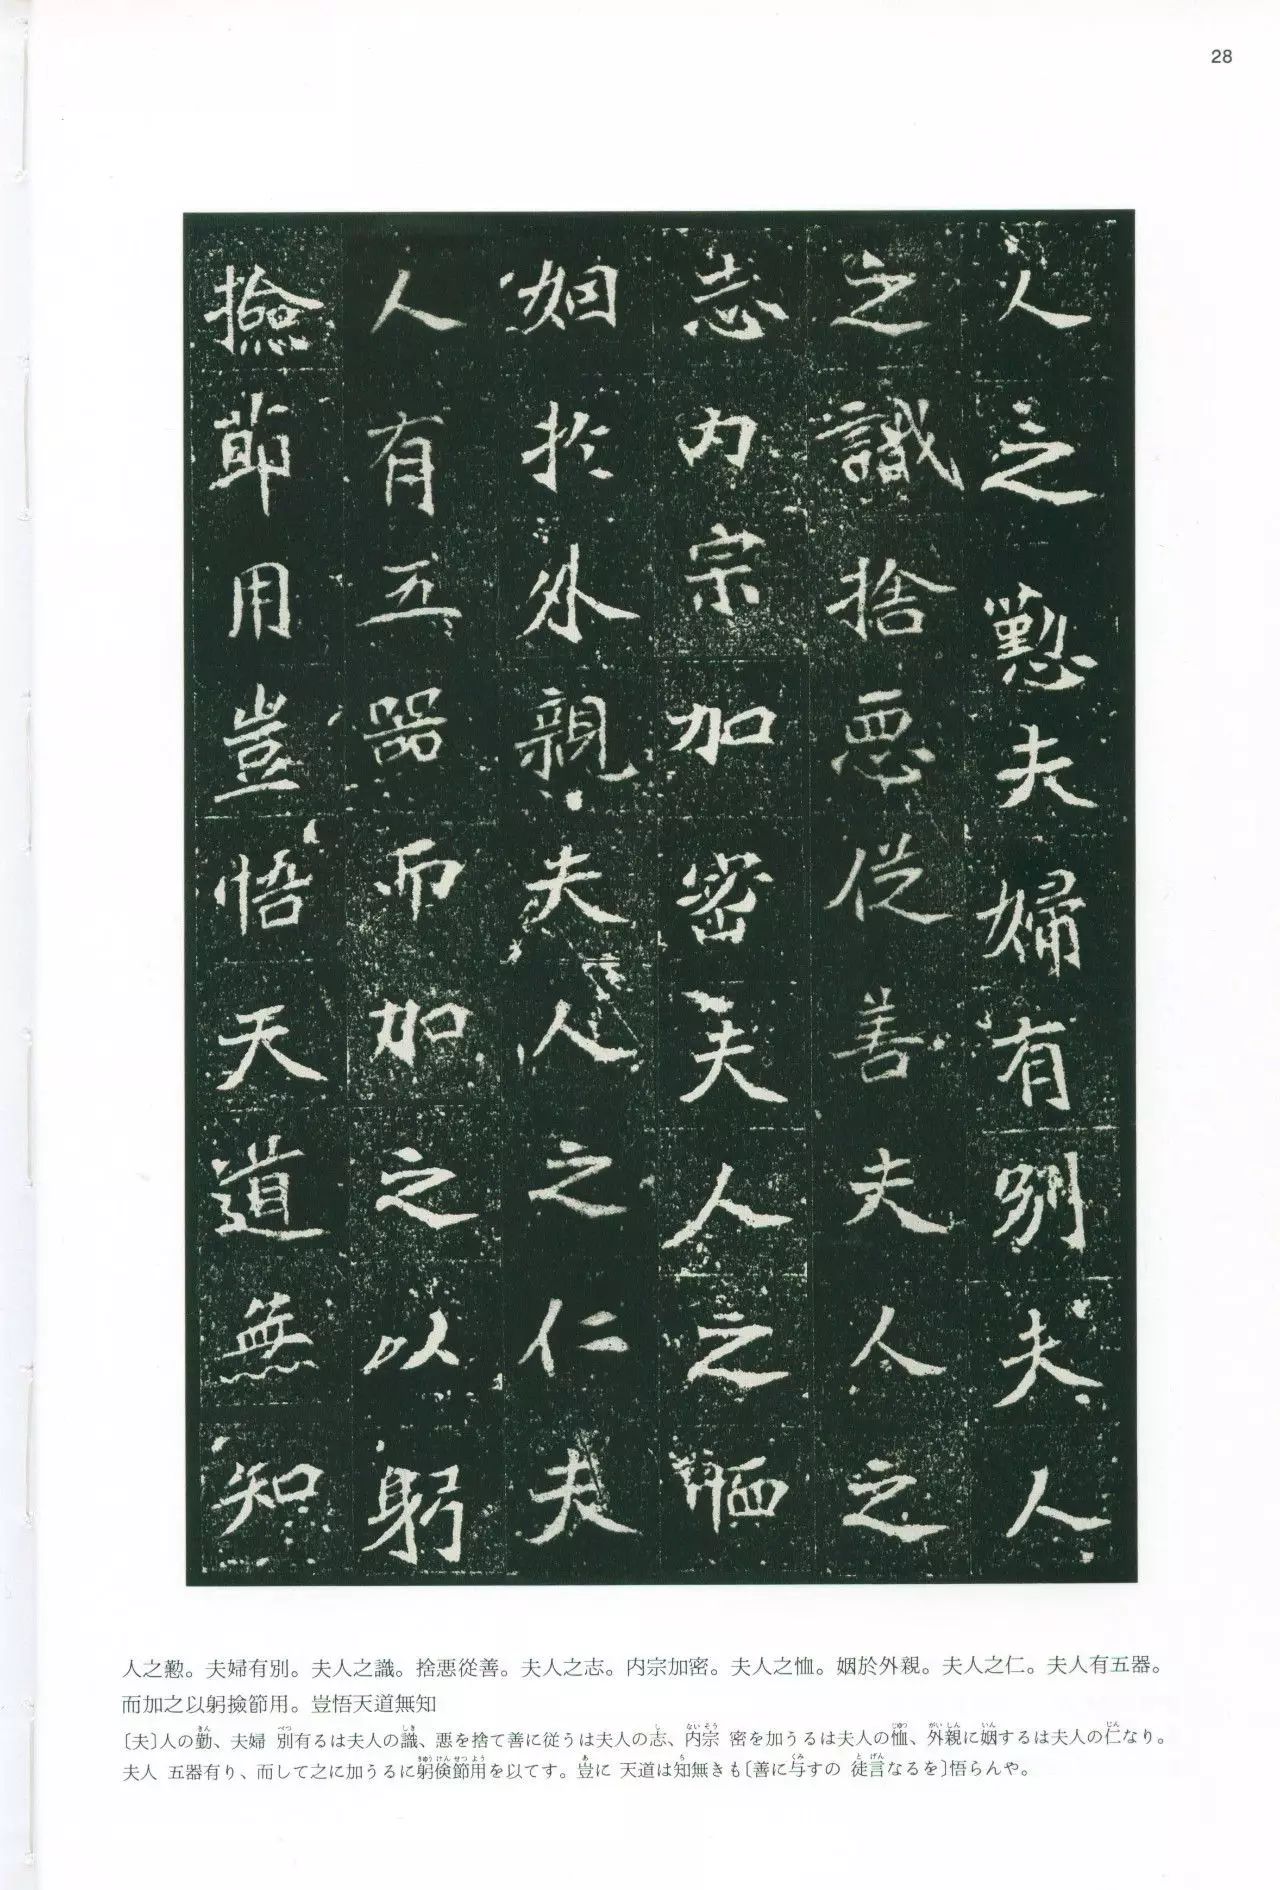 28
人之懃夫婦有別夫人
之識捨惡從善夫人之
志内宗加密夫人之恤
姻於外親夫人之仁夫
人有五器而加之以躬
撿節用豈悟天道無知
人之懃。夫婦有別。夫人之識。捨悪從善。夫人之志。内宗加密。夫人之恤。姻於外親。夫人之仁。夫人有五器。
而加之以躬撿節用。豈悟天道無知
〔夫〕人の勤、夫婦 別有るは夫人の識、悪を捨て善に従うは夫人の志、内宗 密を加うるは夫人の恤、外親に姻するは夫人の仁なり。
夫人 五器有り、而して之に加うるに躬倹節用を以てす。豈に 天道は知無きも〔善に与すの 徒言なるを〕悟らんや。